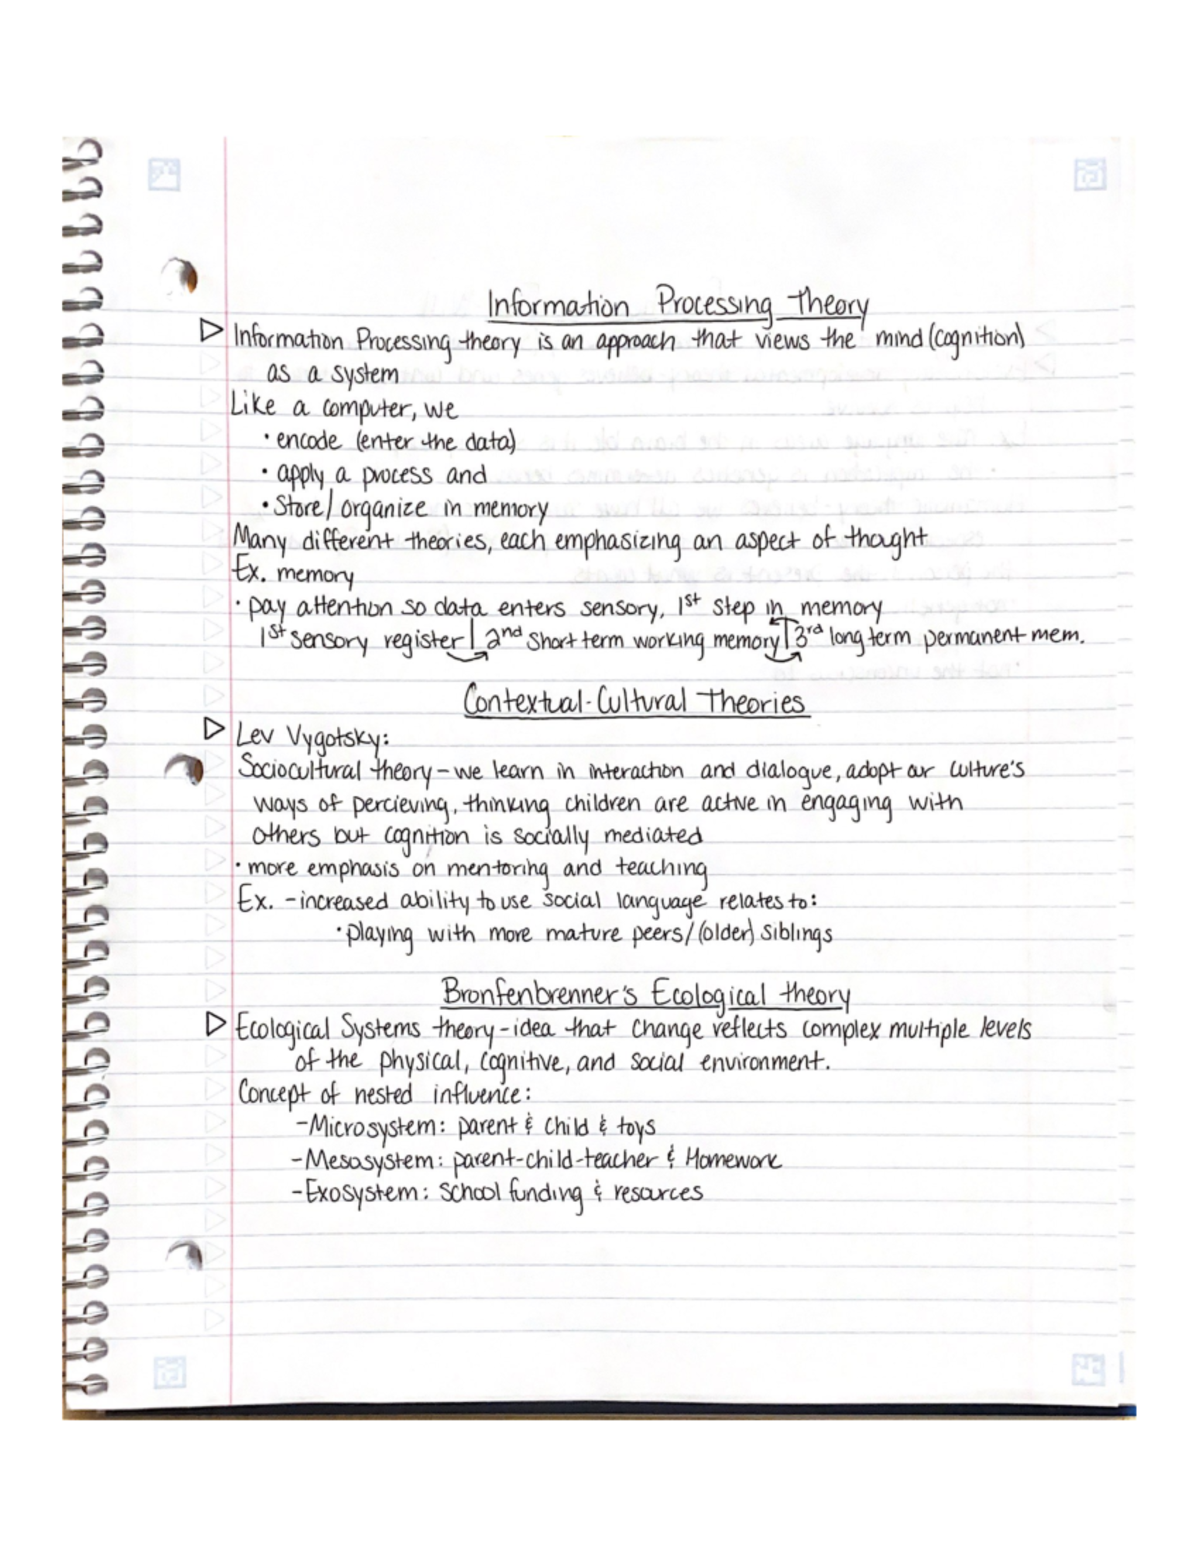 Information Processing Theory
Information Processing theory is an approach that views the mind (cognition)
as a system
Like a computer, we
• encode (enter the data)
• apply a process and
• Store/organize in memory
Many different theories, each emphasizing an aspect of thought
Ex. memory
• pay attention so data enters sensory, 1st step in memory
1st sensory register | 2nd short term working memory | 3rd long term permanent mem.
Contextual-Cultural Theories
Lev Vygotsky:
Sociocultural theory - we learn in interaction and dialogue, adopt our culture's
ways of percieving, thinking children are active in engaging with
others but cognition is socially mediated
• more emphasis on mentoring and teaching
Ex. - increased ability to use social language relates to:
• playing with more mature peers/(older) siblings
Bronfenbrenner's Ecological theory
Ecological Systems theory - idea that change reflects complex multiple levels
of the physical, cognitive, and social environment.
Concept of nested influence:
- Microsystem: parent & child & toys
- Mesosystem: parent-child-teacher & Homework
- Exosystem: school funding & resources